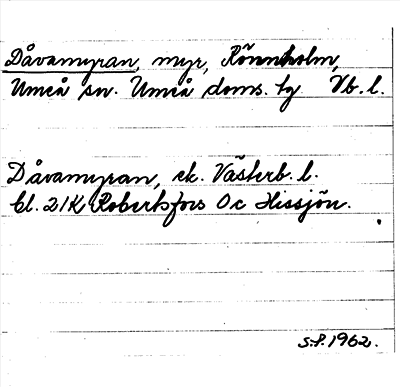 Dåvamyran, myr, Rönnholm,
Umeå sn. Umeå doms. tg Vb. l.
Dåvamyran, ek. Västerb. l.
bl. 21K Robertsfors 0c Hissjön.
S.F. 1962.